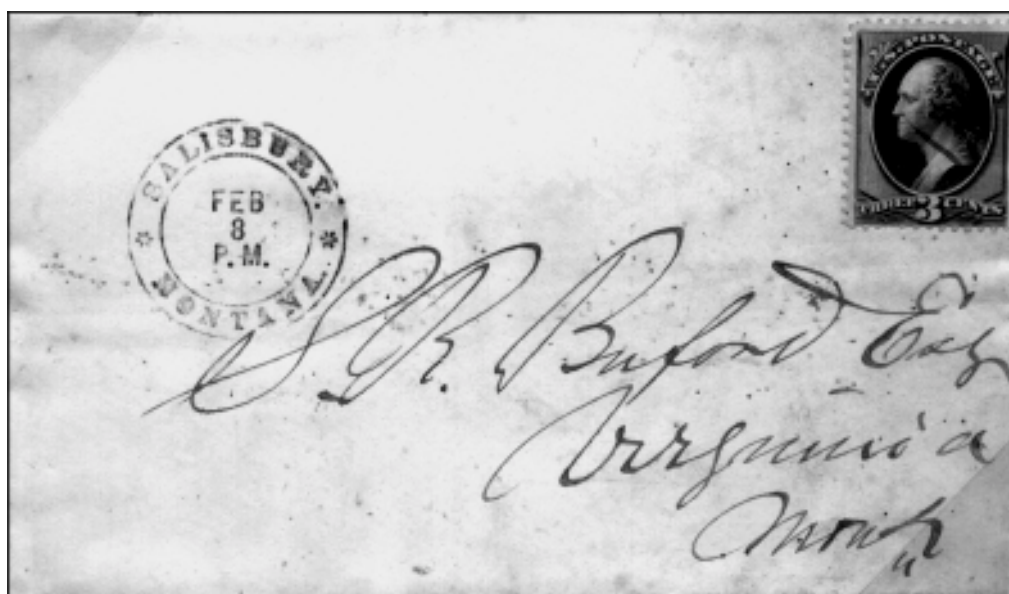 U.S. POSTAGE
THREE 3 CENTS
SALISBURY.
FEB
8
P. M.
MONTANA.
S. R. Buford Esq
Virginia
Mont